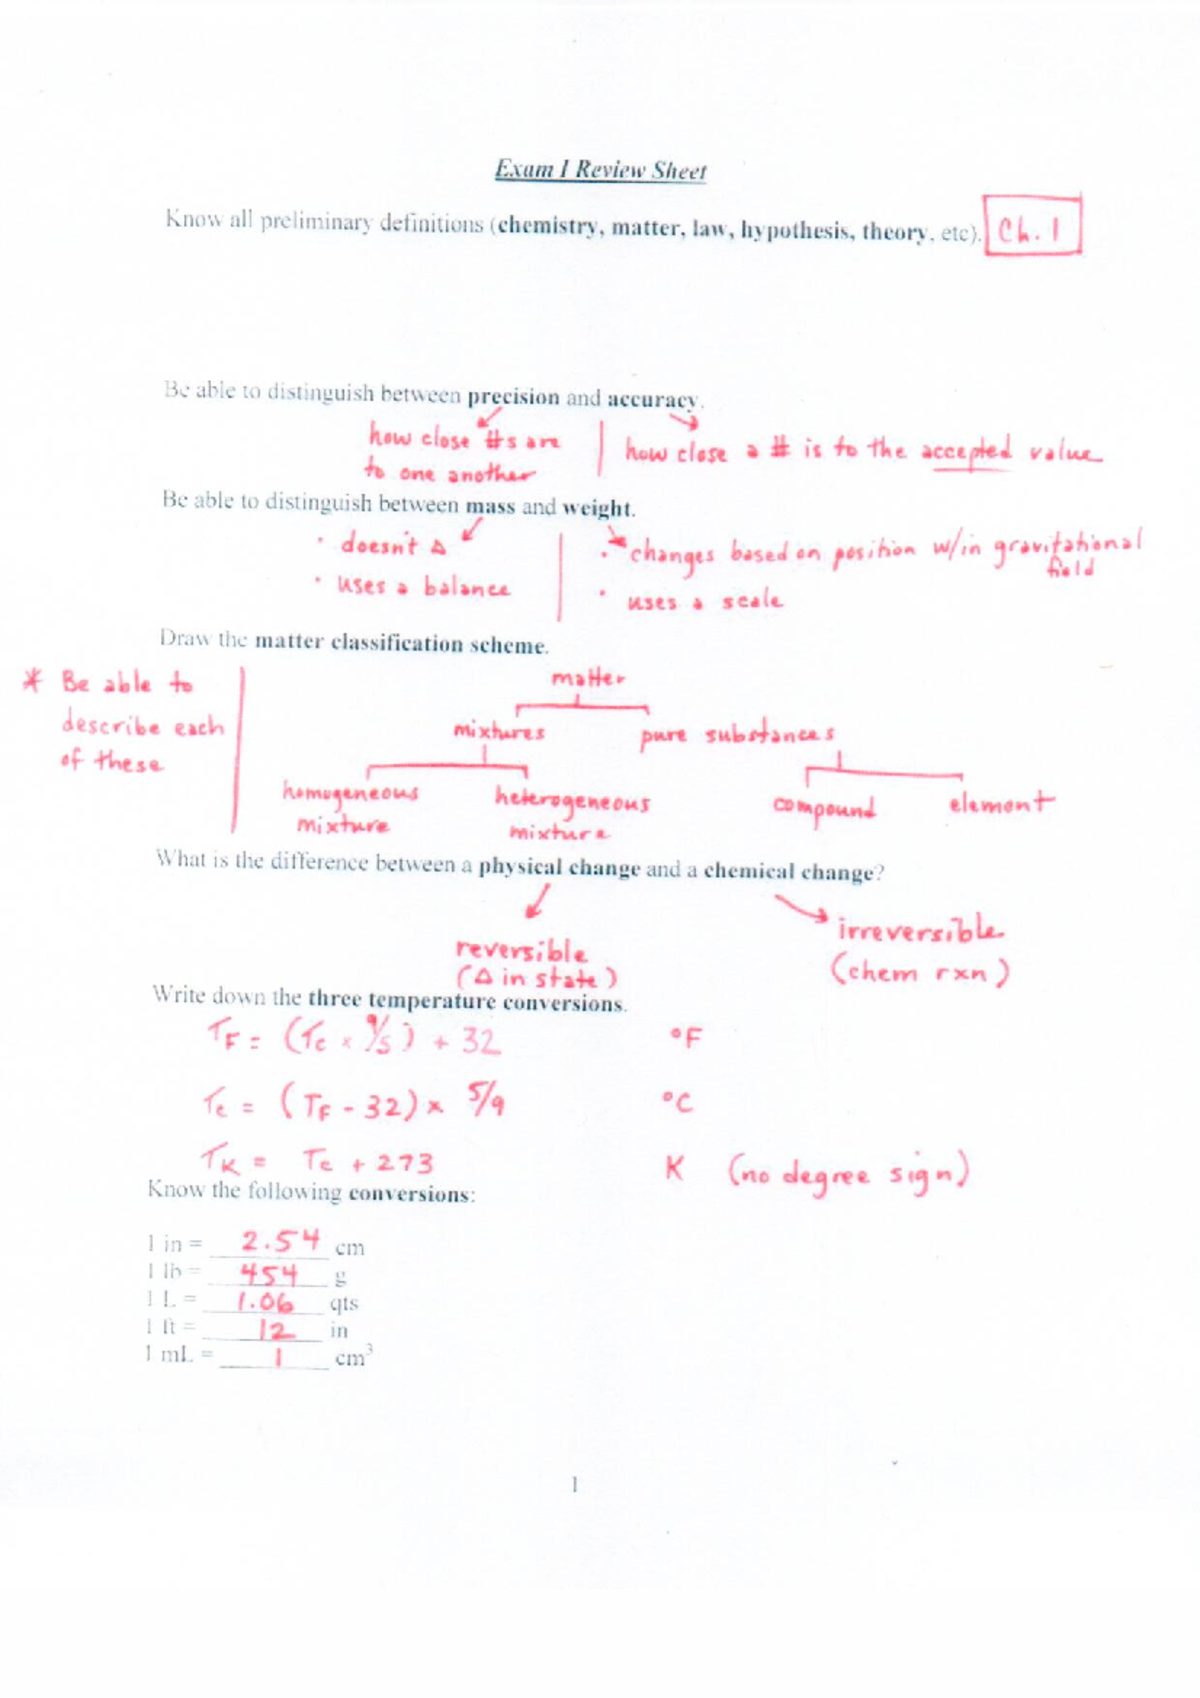 Exam I Review Sheet
Know all preliminary definitions (chemistry, matter, law, hypothesis, theory, etc). Ch. 1
Be able to distinguish between precision and accuracy.
how close #s are
to one another
how close a # is to the accepted value
Be able to distinguish between mass and weight.
• doesn't Δ
• uses a balance
• changes based on position w/in gravitational
field
• uses a scale
Draw the matter classification scheme.
* Be able to
describe each
of these
matter
mixtures pure substances
homogeneous
mixture
heterogeneous
mixture
compound element
What is the difference between a physical change and a chemical change?
reversible
(Δ in state)
irreversible
(chem rxn)
Write down the three temperature conversions.
TF = (Tc × 9/5) + 32 °F
Tc = (TF - 32) × 5/9 °C
TK = Tc + 273 K (no degree sign)
Know the following conversions:
1 in = 2.54 cm
1 lb = 454 g
1 L = 1.06 qts
1 ft = 12 in
1 mL = 1 cm³
1